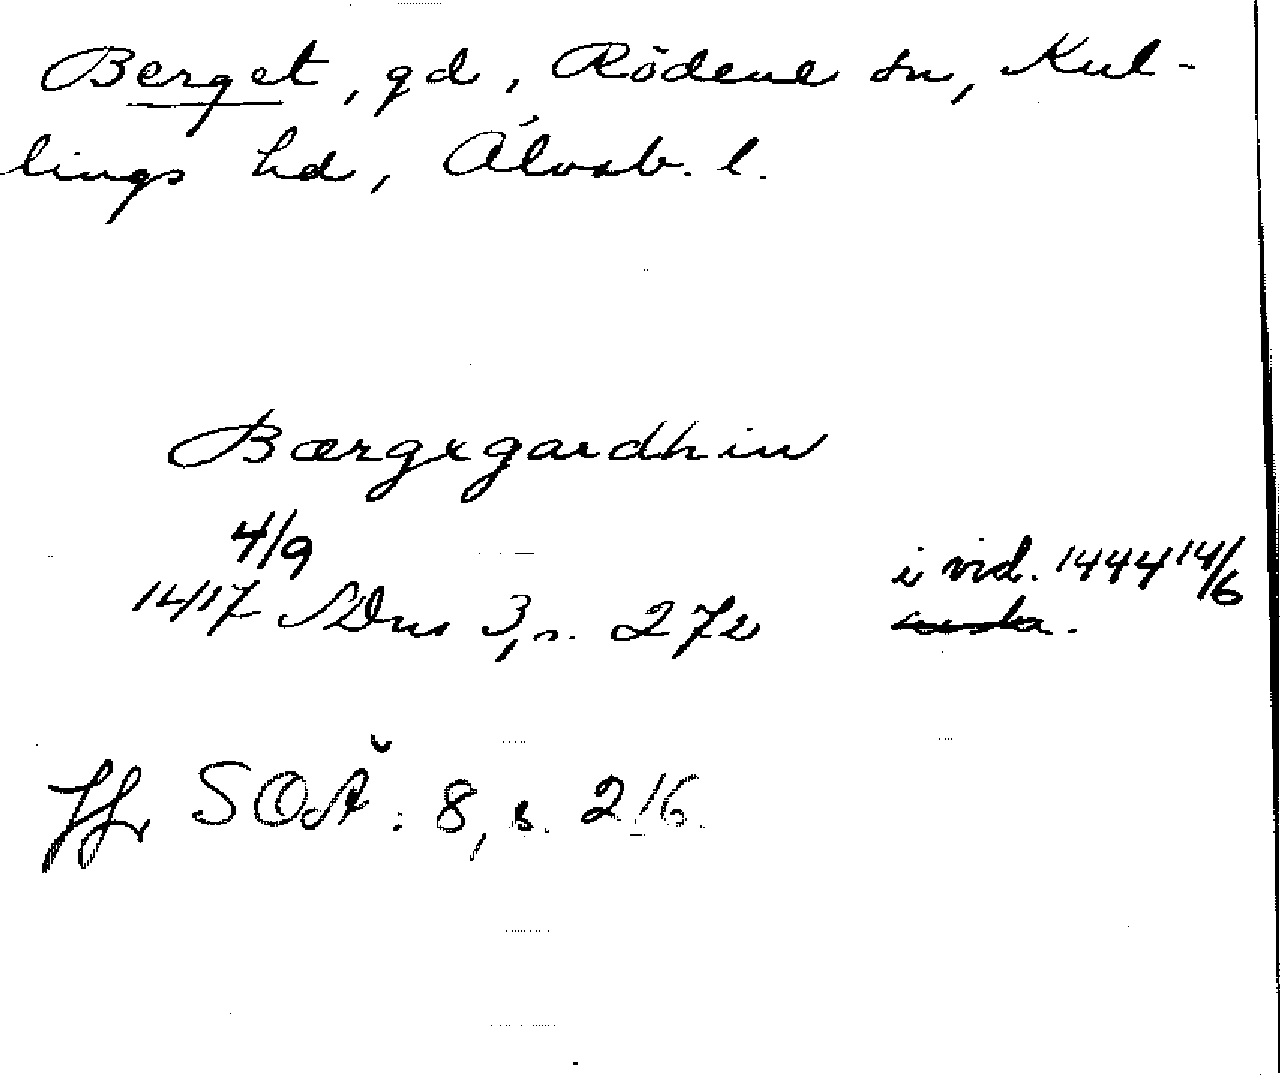 Berget, gd, Rödene sn, Kul-
lings hd, Älvsb. l.
Bærgxgardhin
4/9
1417 SDns 3, s. 272 i vid. 1444 14/6
Jfr SOÄ: 8, s. 216.